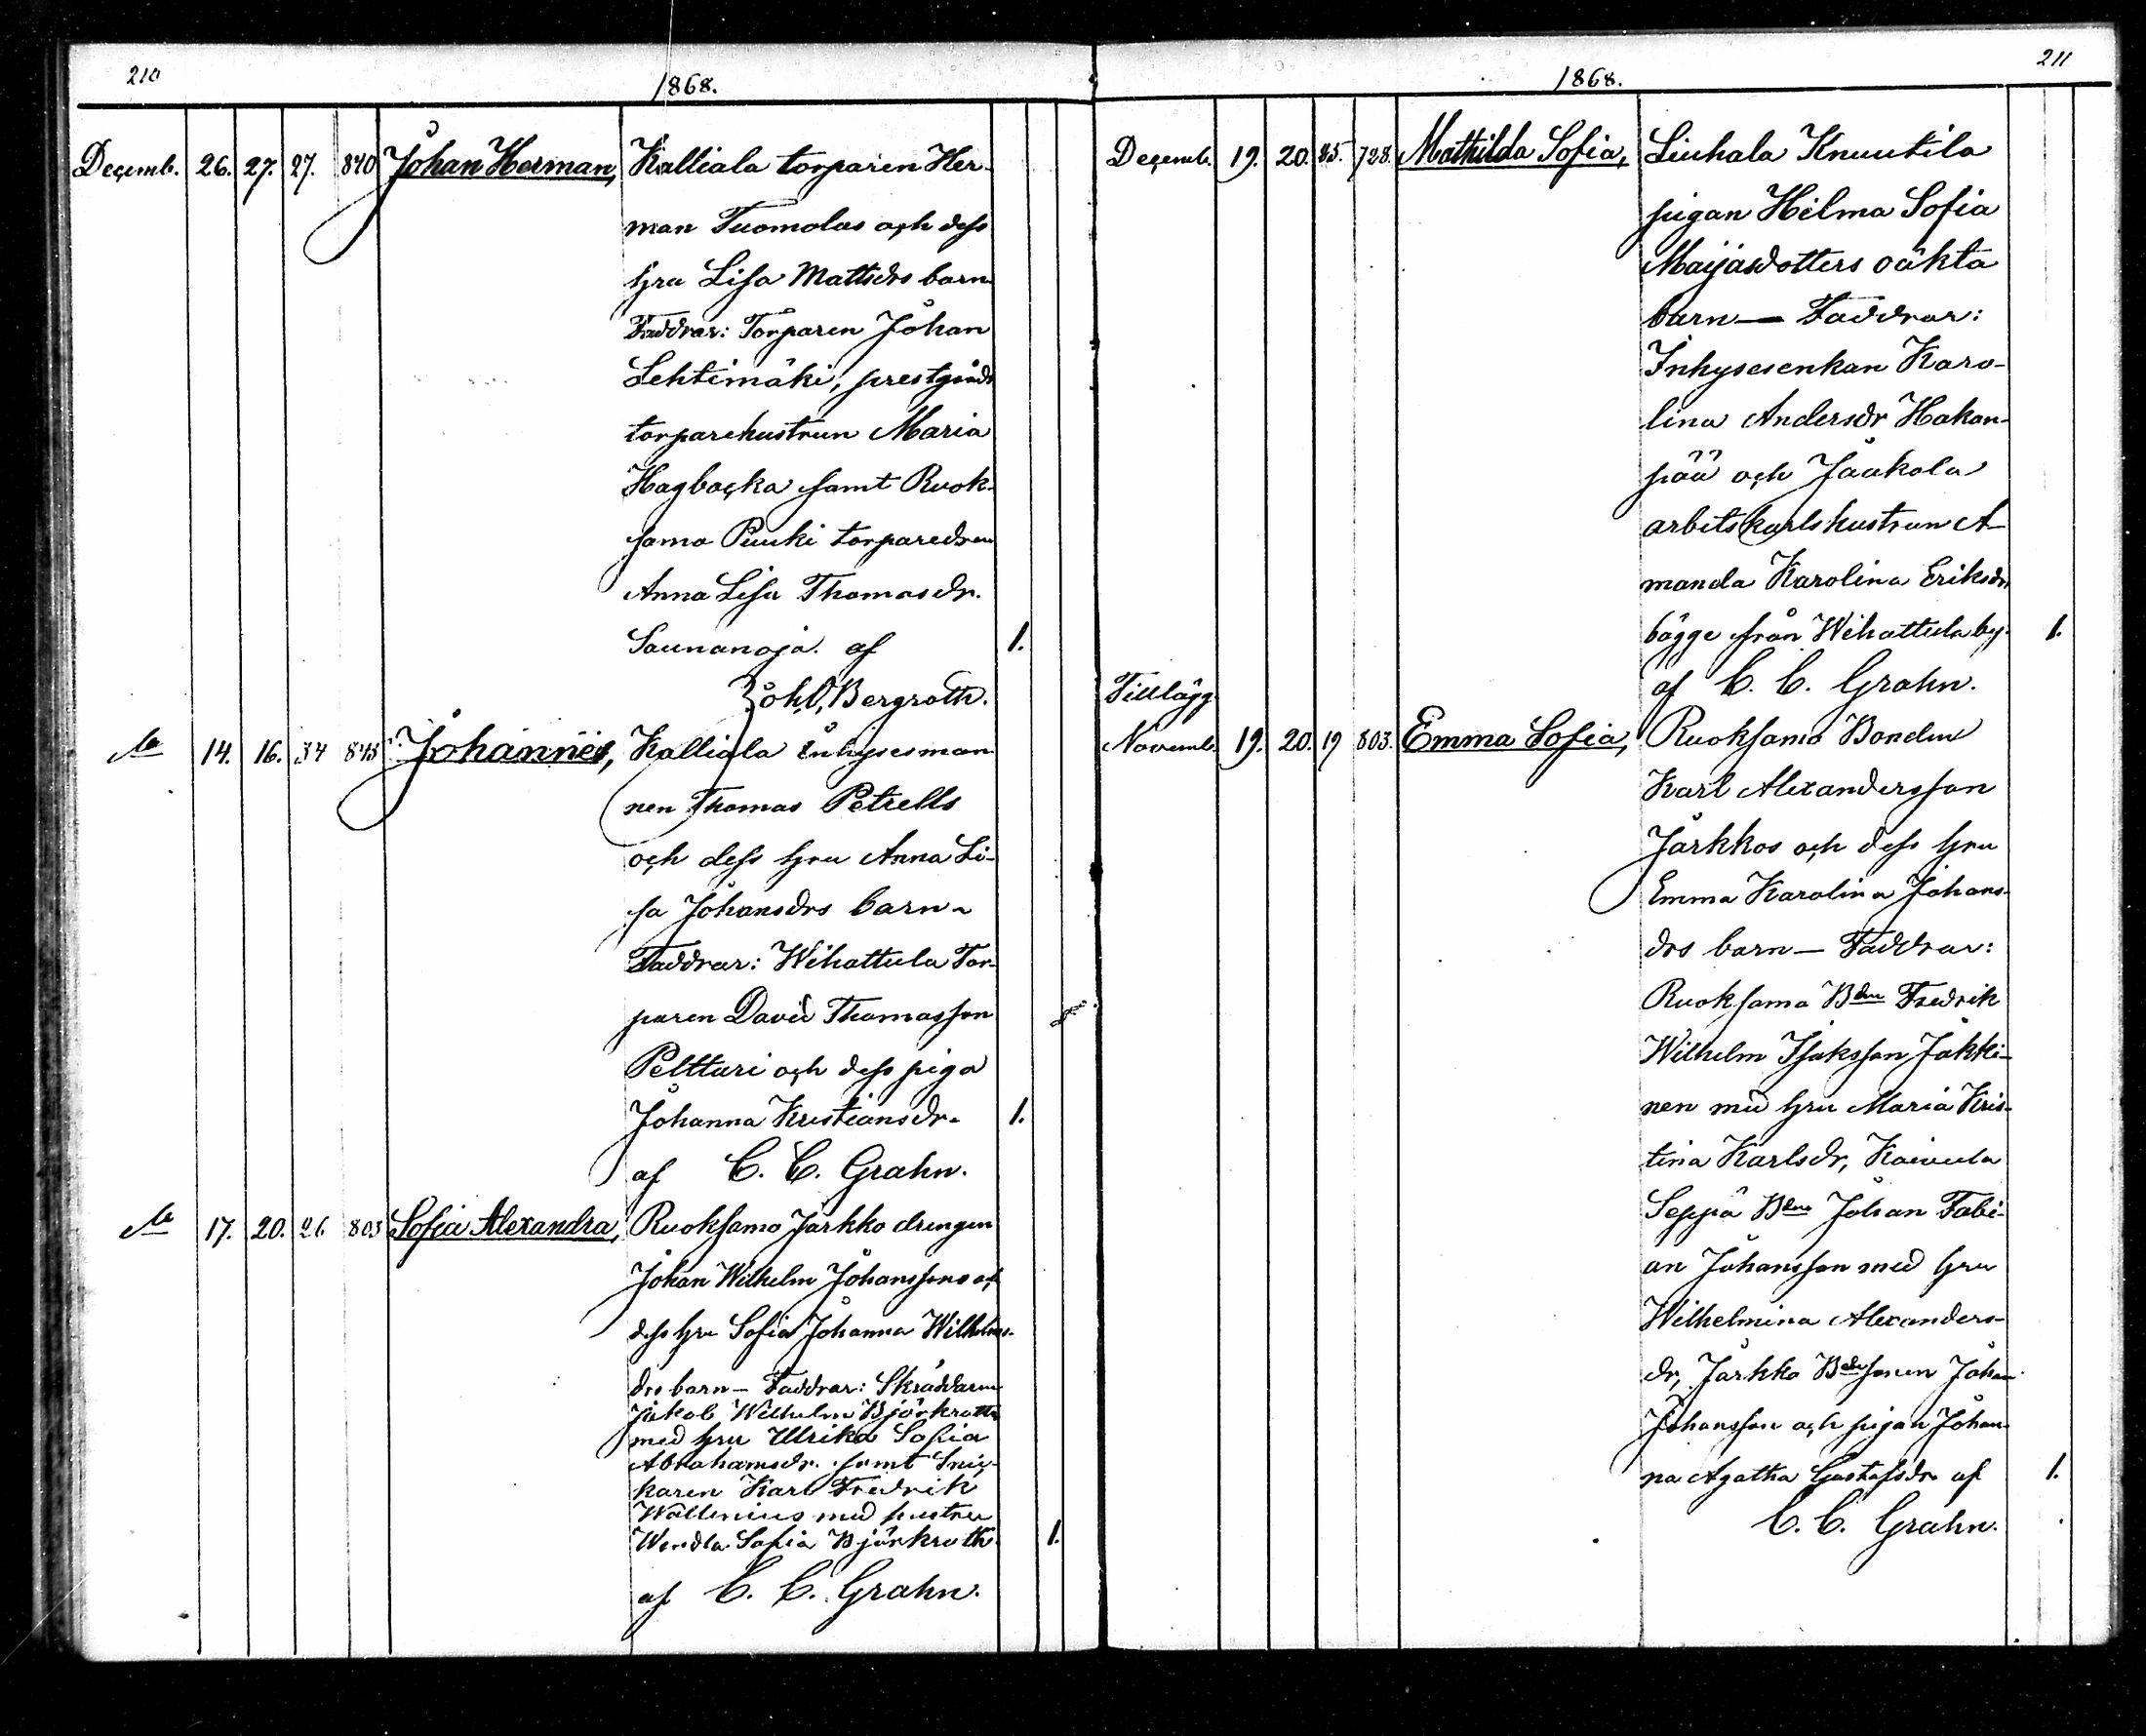 210
1868.
Decemb. 26. 27. 27. 840 Johan Herman, Kalliala torparen Her-
man Tuomolas och dess
hru Lisa Mattsdrs barn
Faddrar: Torparen Johan
Lehtimäki, prestgårds
torparehustrun Maria
Hagbacka samt Ruok-
samo Puuki torparedren
Anna Lisa Thomasdr.
Saunanoja. af 1.
Joh. O. Bergroth.
14. 16. 34 845 Johannes, Kalliala Inhysesman
nen Thomas Petrells
och dess hru Anna Li-
sa Johansdrs barn-
Faddrar: Wihattula Tor-
paren David Thomasson
Pelttari och dess piga
Johanna Kristiansdr. 1.
af C. C. Grahn.
17. 20. 26 803 Sofia Alexandra, Ruoksamo Jarkko drengen
Johan Wilhelm Johanssons och
dess hru Sofia Johanna Wilhelms-
drs barn- Faddrar: Skräddaren
Jakob Wilhelm Björkroth
med hru Ulrika Sofia
Abrahamsdr. samt Snic-
karen Karl Fredrik
Wallenius med hustru
Wendla Sofia Björkroth 1.
af C. C. Grahn.
211
1868.
Decemb. 19. 20. 35. 728. Mathilda Sofia, Liuhala Knuutila
pigan Hilma Sofia
Maijasdotters oäkta
barn- Faddrar:
Inhysesenkan Karo-
lina Andersdr Hakan-
pää och Jaakola
arbetskarlshustrun A-
manda Karolina Eriksdr
bägge från Wihattula by. 1.
af C. C. Grahn.
Tillägg
Novemb. 19. 20. 19 803. Emma Sofia, Ruoksamo Bonden
Karl Alexandersson
Jarkkos och dess hru
Emma Karolina Johans-
drs barn- Faddrar:
Ruoksamo Bden Fredrik
Wilhelm Isaksson Jakki-
nen med hru Maria Kris-
tina Karlsdr, Kaivula
Seppä Bden Johan Fabi-
an Johansson med hru
Wilhelmina Alexanders-
dr, Jarkko Bdesonen Johan
Johansson och pigan Johan-
na Agatha Gustafsdr. af 1.
C. C. Grahn.